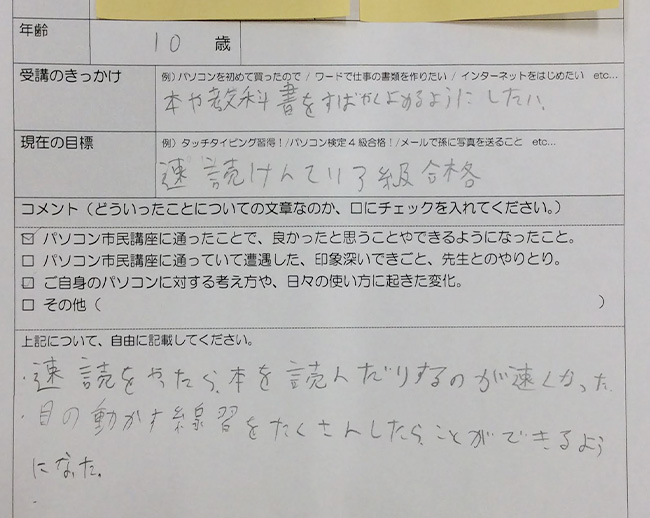 年齢 10 歳
受講のきっかけ 例)パソコンを初めて買ったので / ワードで仕事の書類を作りたい / インターネットをはじめたい etc...
本や教科書をすばやくよめるようにしたい、
現在の目標 例)タッチタイピング習得!/パソコン検定4級合格!/メールで孫に写真を送ること etc...
速読けんてい7級合格
コメント(どういったことについての文章なのか、口にチェックを入れてください。)
☑ パソコン市民講座に通ったことで、良かったと思うことやできるようになったこと。
□ パソコン市民講座に通っていて遭遇した、印象深いできごと、先生とのやりとり。
□ ご自身のパソコンに対する考え方や、日々の使い方に起きた変化。
□ その他( )
上記について、自由に記載してください。
・速読をやったら、本を読んだりするのが速くなった
・目の動かす練習をたくさんしたら、ことができるよう
になった。